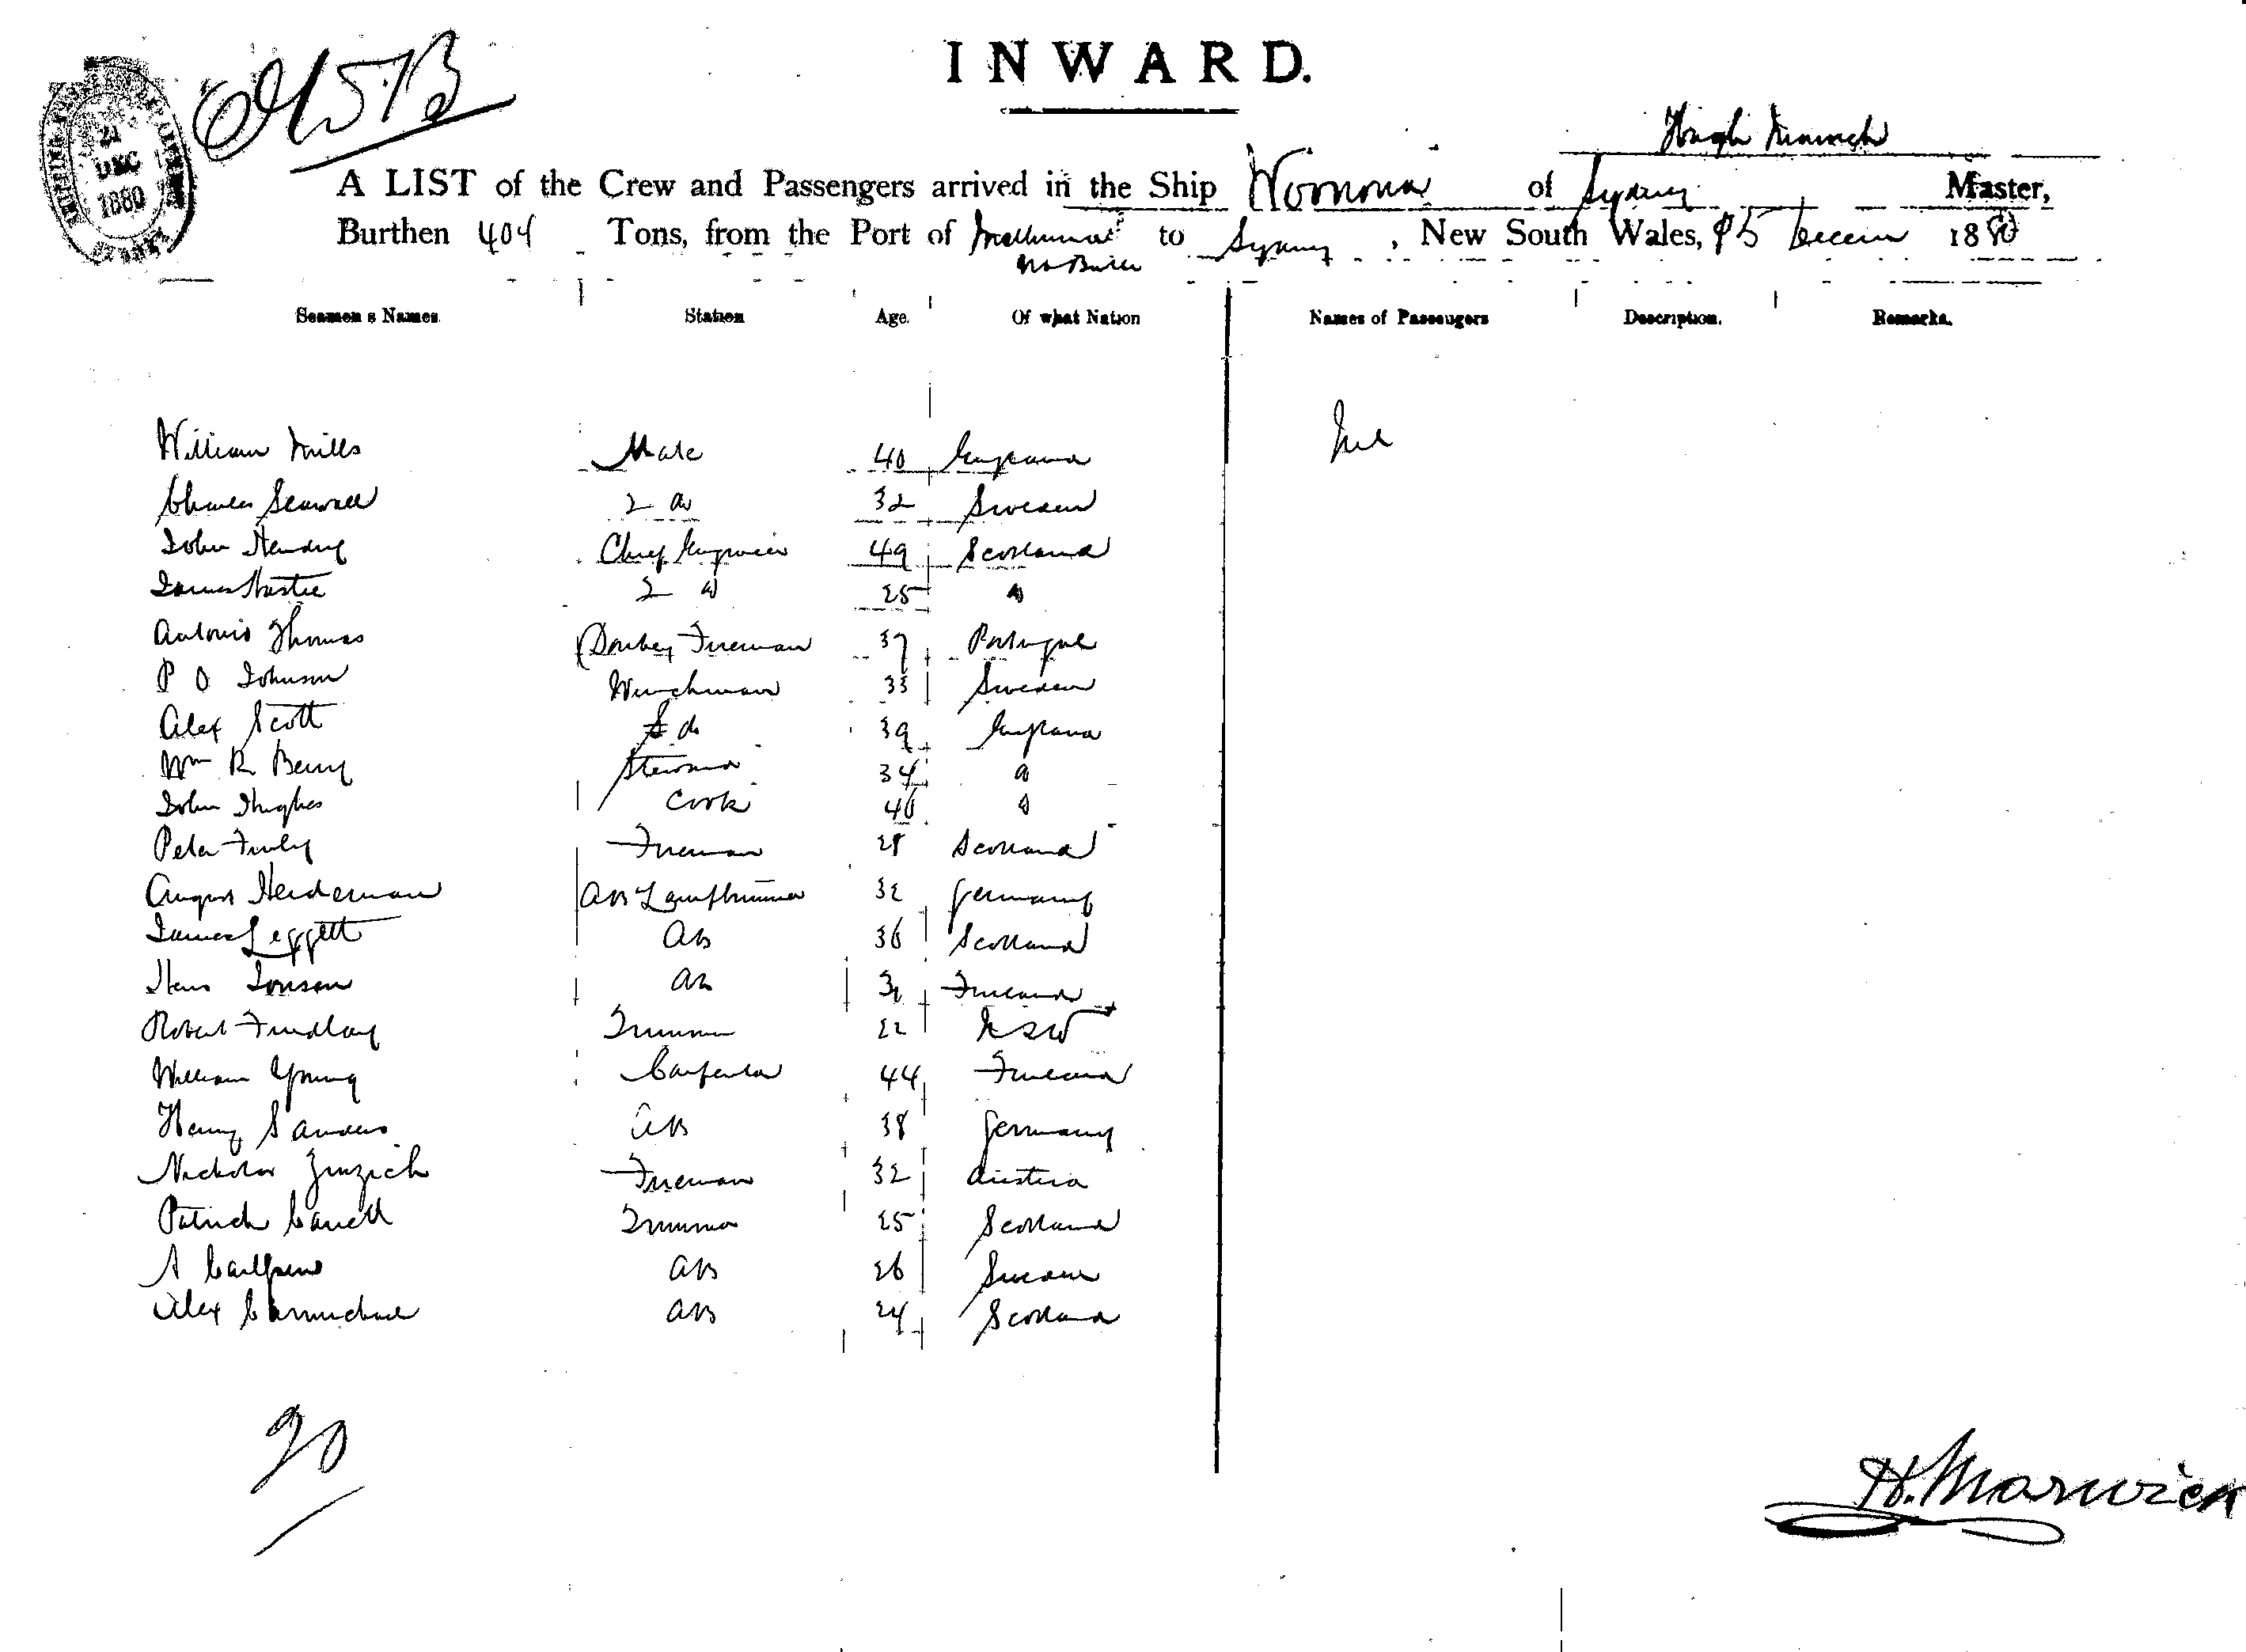 INWARD.
21
DEC
1880
Hugh
A LIST of the Crew and Passengers arrived in the Ship Woniora of Sydney Master,
Burthen 404 Tons, from the Port of Melbourne to Sydney, New South Wales, 1880
Seamen s Names Station Age. Of what Nation Names of Passengers Description. Remarks.
William Mills Mate 40 England Nil
Charles 2 do 32 Sweden
John Hendry Chief Engineer 49 Scotland
James Hastie 2 do 25 do
Antonio Thomas Donkey Fireman 37 Portugal
P O Johnson Winchman 33 Sweden
Alex Scott do 39 England
Wm R Berry Steward 34 do
John Hughes Cook 40 do
Peter Fireman 28 Scotland
August Heideman AB Lamptrimmer 32 Germany
James Leggett AB 36 Scotland
Hans Jonsen AB Finland
Robert Findlay Trimmer 22 NSW
William Young Carpenter 44 Finland
Henry Sanders AB 38 Germany
Nickolas Zinzich Fireman 32 Austria
Patrick Trimmer 25 Scotland
A AB 26 Sweden
Alex Carmichael AB 24 Scotland
20
H. Marwick